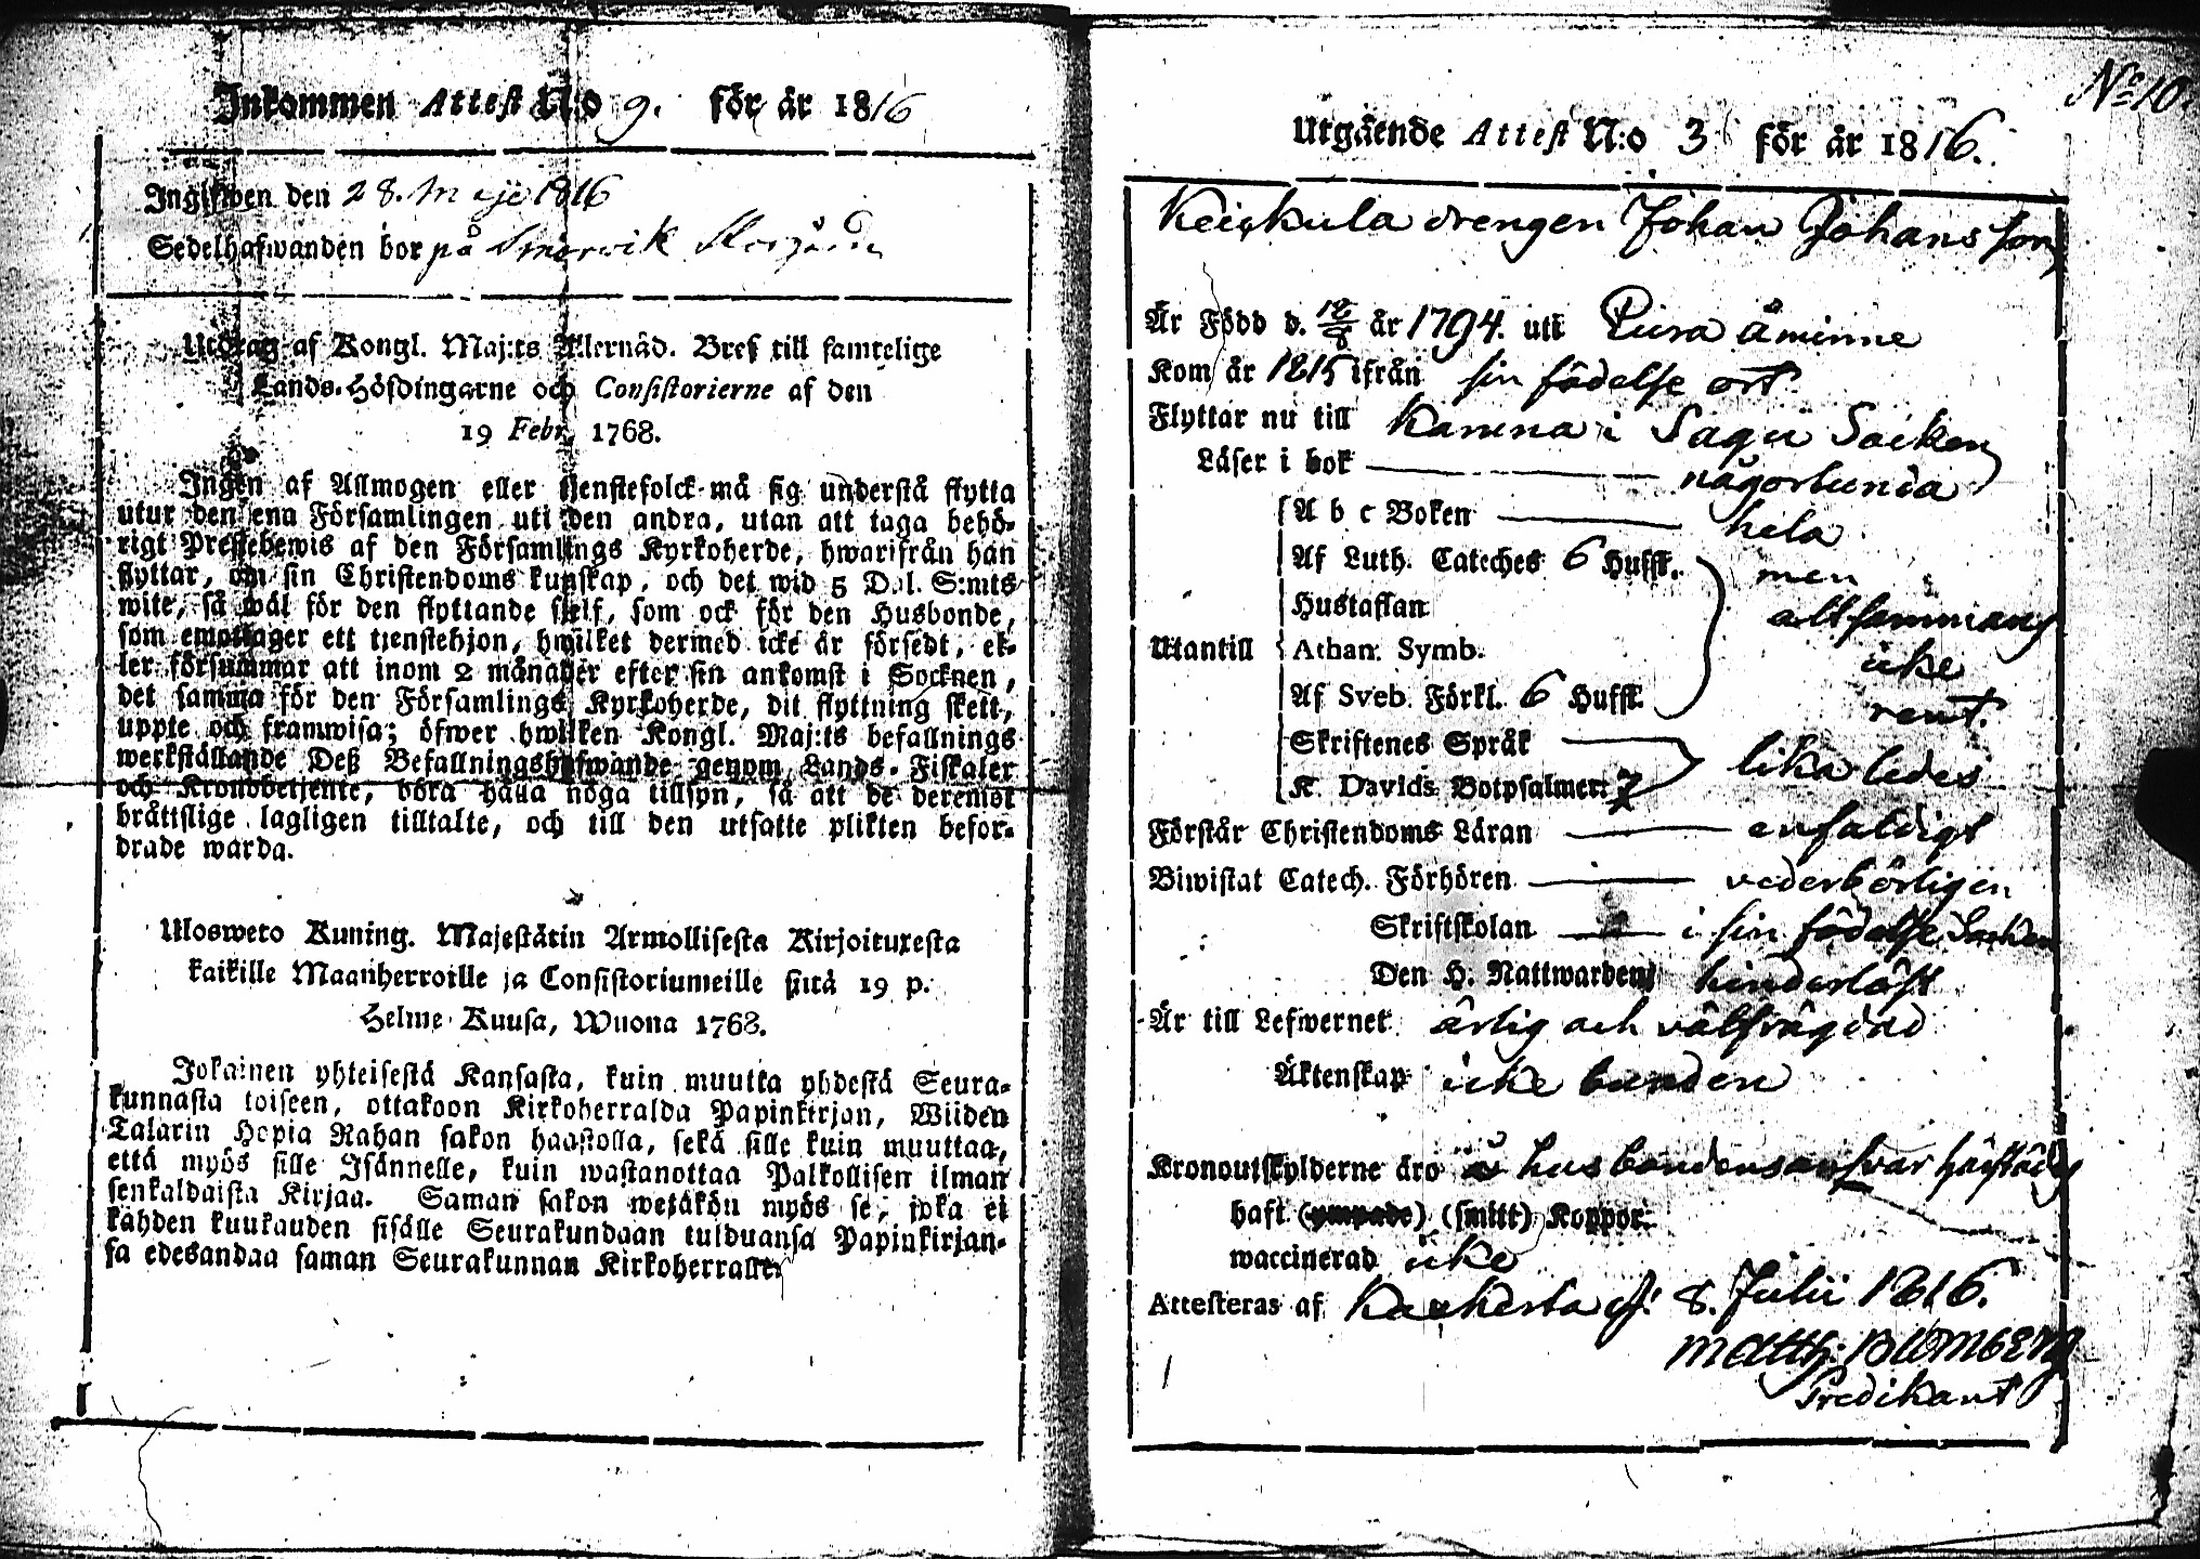 Inkommen Attest N:o 9. för år 1816
Ingifwen den 28. Maji 1816
Sedelhafwanden bor på
Utdrag af Kongl. Maj:ts Allernåd. Bref till samtelige
Lands-Höfdingarne och Consistorierne af den
19 Febr. 1768.
Ingen af Allmogen eller tjenstefolck må sig understå flytta
utur den ena Församlingen uti den andra, utan att taga behö-
rigt Prestebewis af den Församlings Kyrkoherde, hwarifrån han
flyttar, om sin Christendoms kunskap, och det wid 5 Dal. S:mts
wite, så wäl för den flyttande sielf, som ock för den Husbonde,
som emottager ett tjenstehjon, hwilket dermed icke är försedt, el-
ler försummar att inom 2 månader efter sin ankomst i Socknen,
det samma för den Församlings Kyrkoherde, dit flyttning skett,
uppte och framwisa; öfwer hwilken Kongl. Maj:ts befallnings
werkställande Deß Befallningshafwande genom Lands-Fiskaler
och Kronobetjente, böra hålla noga tillsyn, så att de deremot
bråttslige lagligen tilltalte, och till den utsatte plikten befor-
drade warda.
Ulosweto Kuning. Majestätin Armollisesta Kirjoituxesta
kaikille Maanherroille ja Consistoriumeille siitä 19 p.
Helme Kuusa, Wuona 1768.
Jokainen yhteisestä Kansasta, kuin muutta yhdestä Seura-
kunnasta toiseen, ottakoon Kirkoherralda Papinkirjan, Wiiden
Talarin Hopia Rahan sakon haastolla, sekä sille kuin muuttaa,
että myös sille Isännelle, kuin wastanottaa Palkollisen ilman
senkaldaista Kirjaa. Saman sakon wetäkön myös se, joka ei
kahden kuukauden sisälle Seurakundaan tulduansa Papinkirjan-
sa edesandaa saman Seurakunnan Kirkoherralle.
No 10.
Utgående Attest N:o 3 för år 1816.
Keiskula drengen Johan Johansson
Är Född d. 12/8 år 1794. uti Åminne
Kom år 1815 ifrån sin födelse ort
Flyttar nu till Kamna i Sagu Socken
Läser i bok någorlunda
A b c Boken hela
Af Luth. Cateches 6 Hufst. men
Hustaflan allsammans
Utantill Athan. Symb. icke
Af Sveb. Förkl. 6 Hufst. rent.
Skriftenes Språk
K. Davids Botpsalmer 7 lika ledes
Förstår Christendoms Läran enfaldigt
Biwistat Catech. Förhören vederbörligen
Skriftskolan i sin födelse Socken
Den H. Nattwarden hinderlöst
Är till Lefwernet ärlig och välfrägdad
Äktenskap icke bunden
Kronoutskylderne äro å husbondens answar
haft (ympade) (smitt) Koppor.
waccinerad icke
Attesteras af 8. Julii 1816.
Matth: Blomberg
Predikant